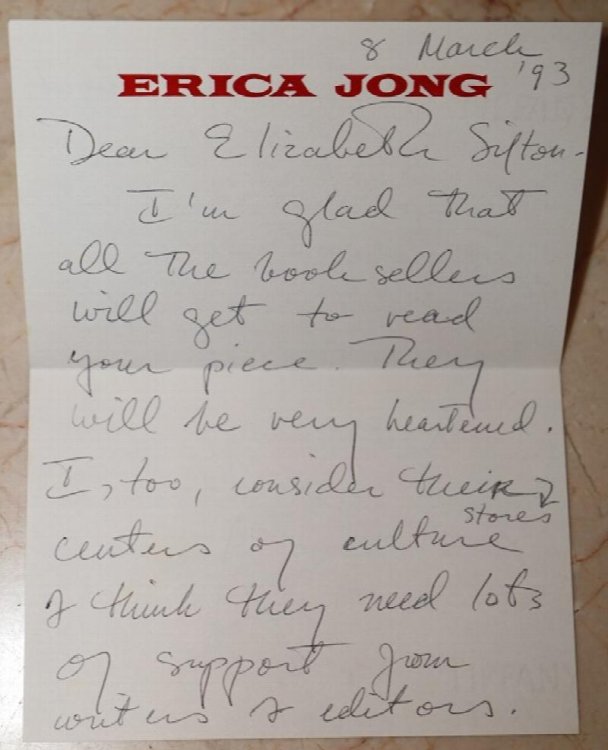 8 March '93
ERICA JONG
Dear Elizabeth Sifton -
I'm glad that
all the booksellers
will get to read
your piece. They
will be very heartened.
I, too, consider their
stores
centers of culture
& think they need lots
of support from
writers & editors.